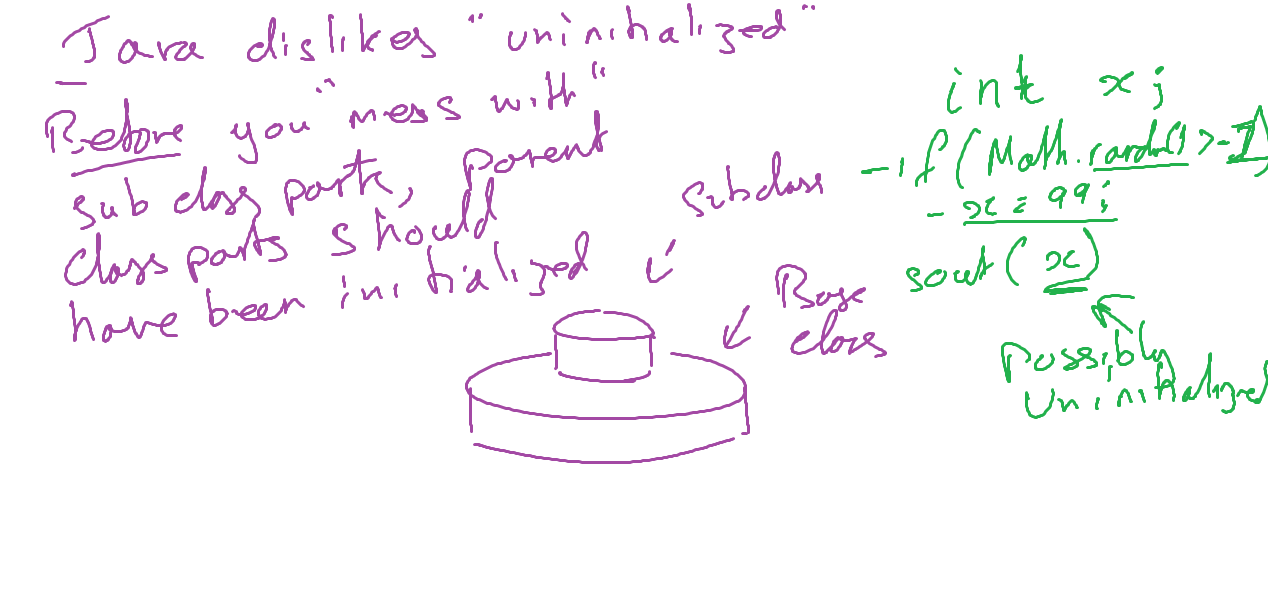 Java dislikes "uninitialized"
Before you "mess with"
sub class parts, parent
class parts should
have been initialized
subclass
Base
class
int x;
if(Math.random() > -1)
x = 99;
sout(x)
Possibly
Uninitialized